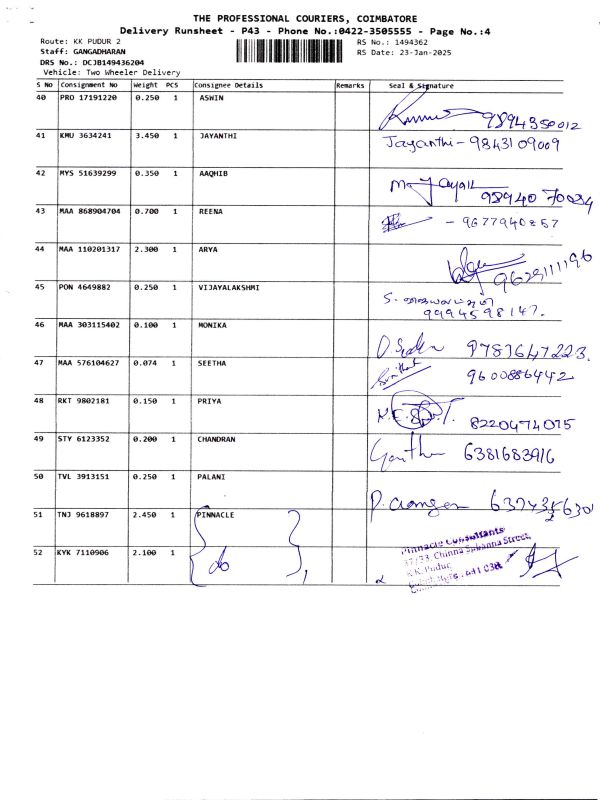 THE PROFESSIONAL COURIERS, COIMBATORE
Delivery Runsheet - P43 - Phone No.:0422-3505555 - Page No.:4
Route: KK PUDUR 2 RS No.: 1494362
Staff: GANGADHARAN RS Date: 23-Jan-2025
DRS No.: DCJB149436204
Vehicle: Two Wheeler Delivery
S No Consignment No Weight PCS Consignee Details Remarks Seal & Signature
40 PRO 17191220 0.250 1 ASWIN 9894350012
41 KMU 3634241 3.450 1 JAYANTHI Jayanthi - 9843109009
42 MYS 51639299 0.350 1 AAQHIB 98940 70024
43 MAA 868904704 0.700 1 REENA - 9677940257
44 MAA 110201317 2.300 1 ARYA 9629111196
45 PON 4649882 0.250 1 VIJAYALAKSHMI
9994598147.
46 MAA 303115402 0.100 1 MONIKA 9787647223.
47 MAA 576104627 0.074 1 SEETHA 9600886442
48 RKT 9802181 0.150 1 PRIYA 8220474075
49 STY 6123352 0.200 1 CHANDRAN 6381683916
50 TVL 3913151 0.250 1 PALANI
51 TNJ 9618897 2.450 1 PINNACLE
52 KYK 7110906 2.100 1 do
Pinnacle Consultants
37/33, Chinna Subanna Street,
K.K. Pudur,